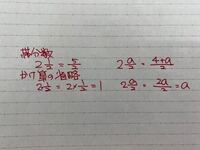 帯分数
2 1/2 = 5/2    2 a/2 = 4+a/2
かけ算の省略
2 1/2 = 2×1/2 = 1    2 a/2 = 2a/2 = a